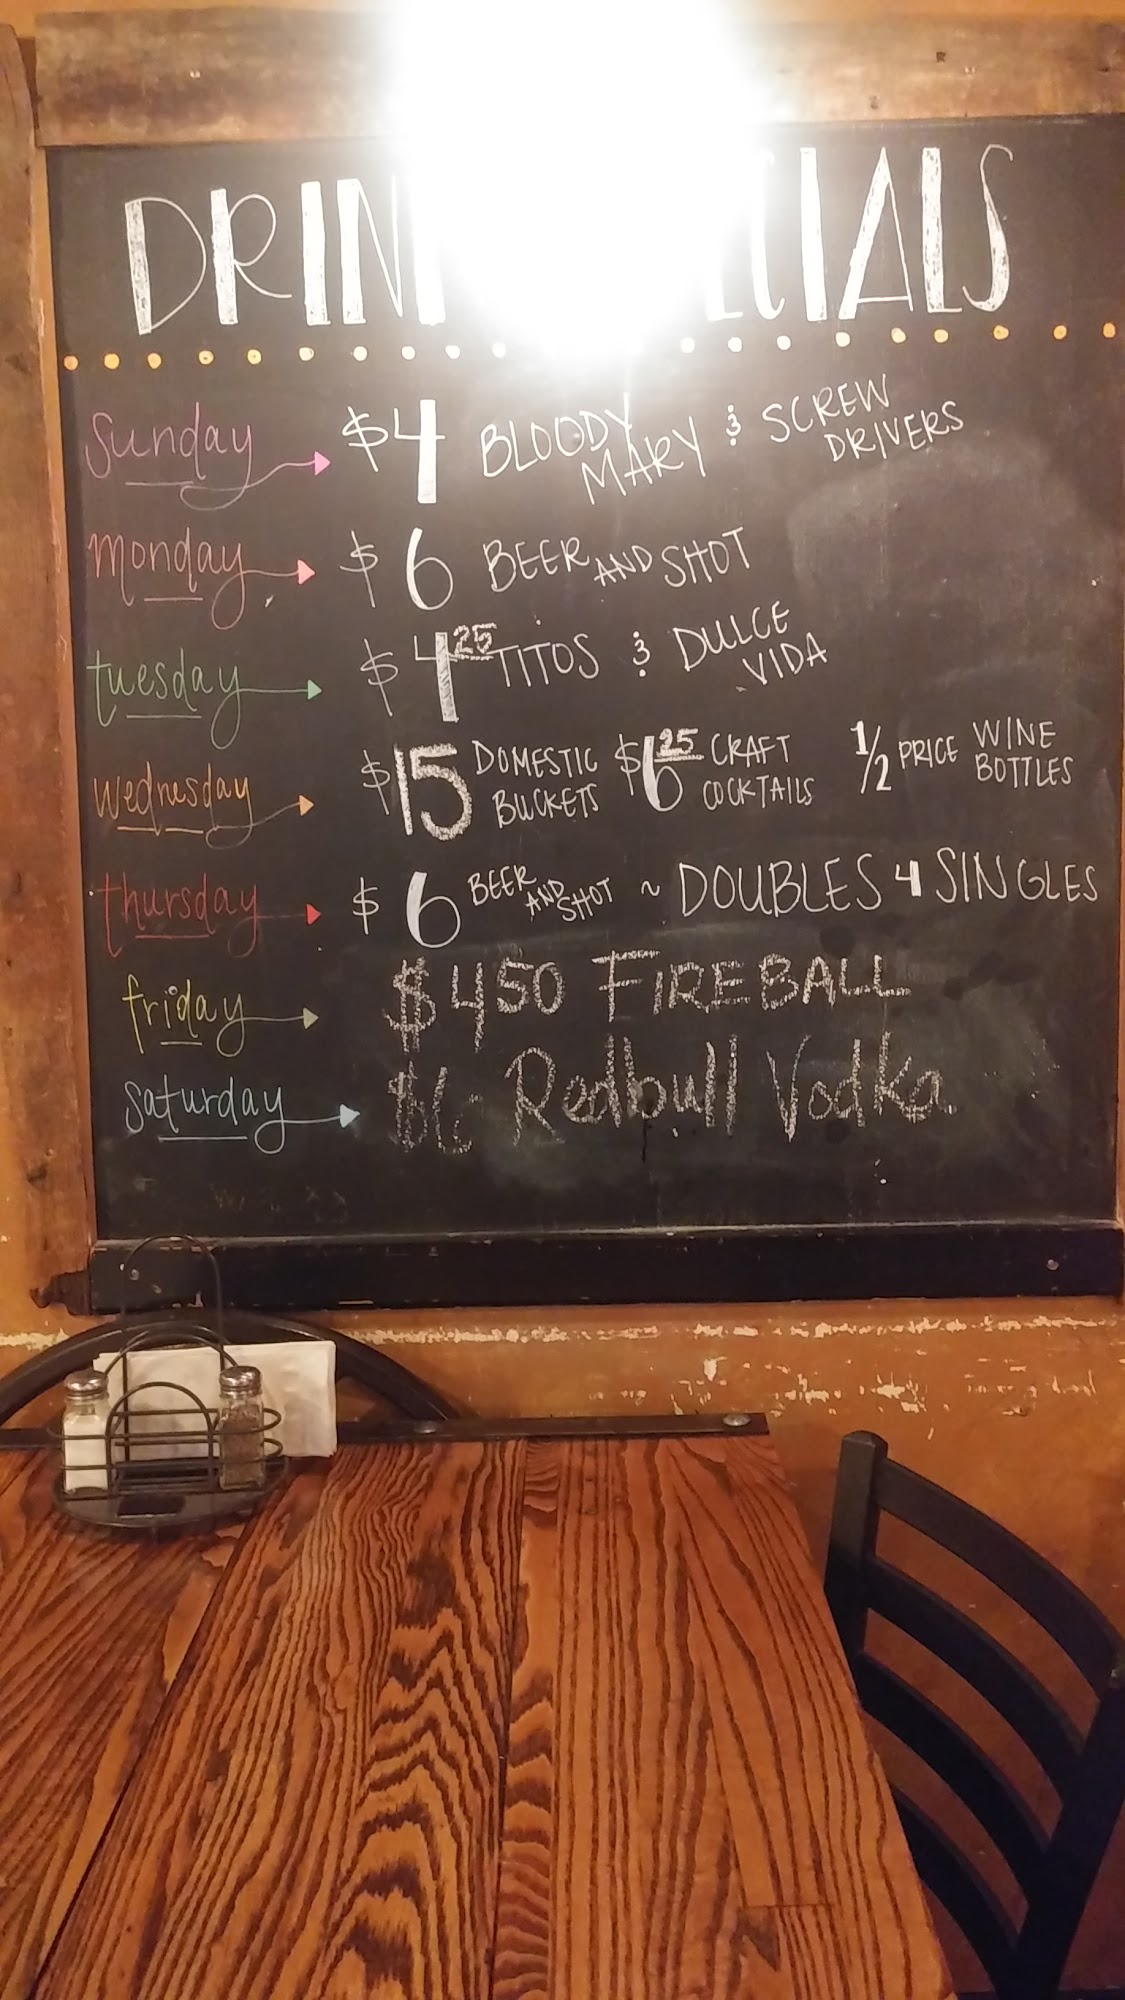 DRIN ECIALS
sunday $4 BLOODY MARY & SCREW DRIVERS
monday $6 BEER AND SHOT
tuesday $4 25 TITOS & DULCE VIDA
wednesday $15 DOMESTIC BUCKETS $6 25 CRAFT COCKTAILS 1/2 PRICE WINE BOTTLES
thursday $6 BEER AND SHOT ~ DOUBLES 4 SINGLES
friday $450 FIREBALL
saturday $6 Redbull Vodka